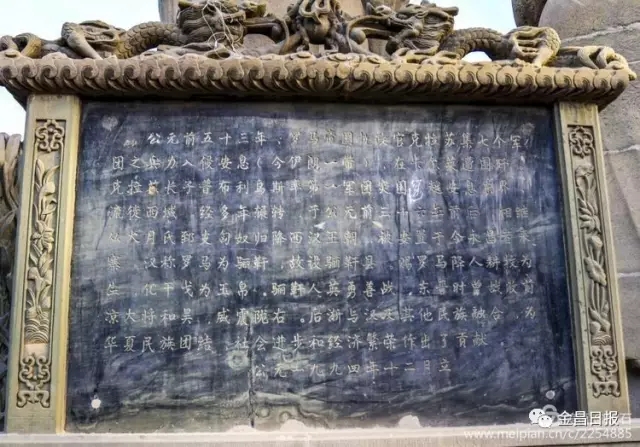 公元前五十三年,罗马帝国执政官克拉苏集七个军
团之兵力入侵安息(今伊朗一带),在卡尔莱遭围歼
克拉苏长子普布利乌斯率第一军团突围 越安息
流徙西域,经多年辗转,于公元前三十六年前 相继
从大月氏到匈奴归降西汉王朝,被安置于今永昌
寨。汉称罗马为骊靬,故设骊靬县,赐罗马降人耕牧为
生,化干戈为玉帛。骊靬人英勇善战,东晋时曾战败前
凉大将和昊,威震陇右。后渐与汉及其他民族融合,为
华夏民族团结、社会进步和经济繁荣作出了贡献。
公元一九九四年十二日立
金昌日报
www.meipian.cn/c/2254885